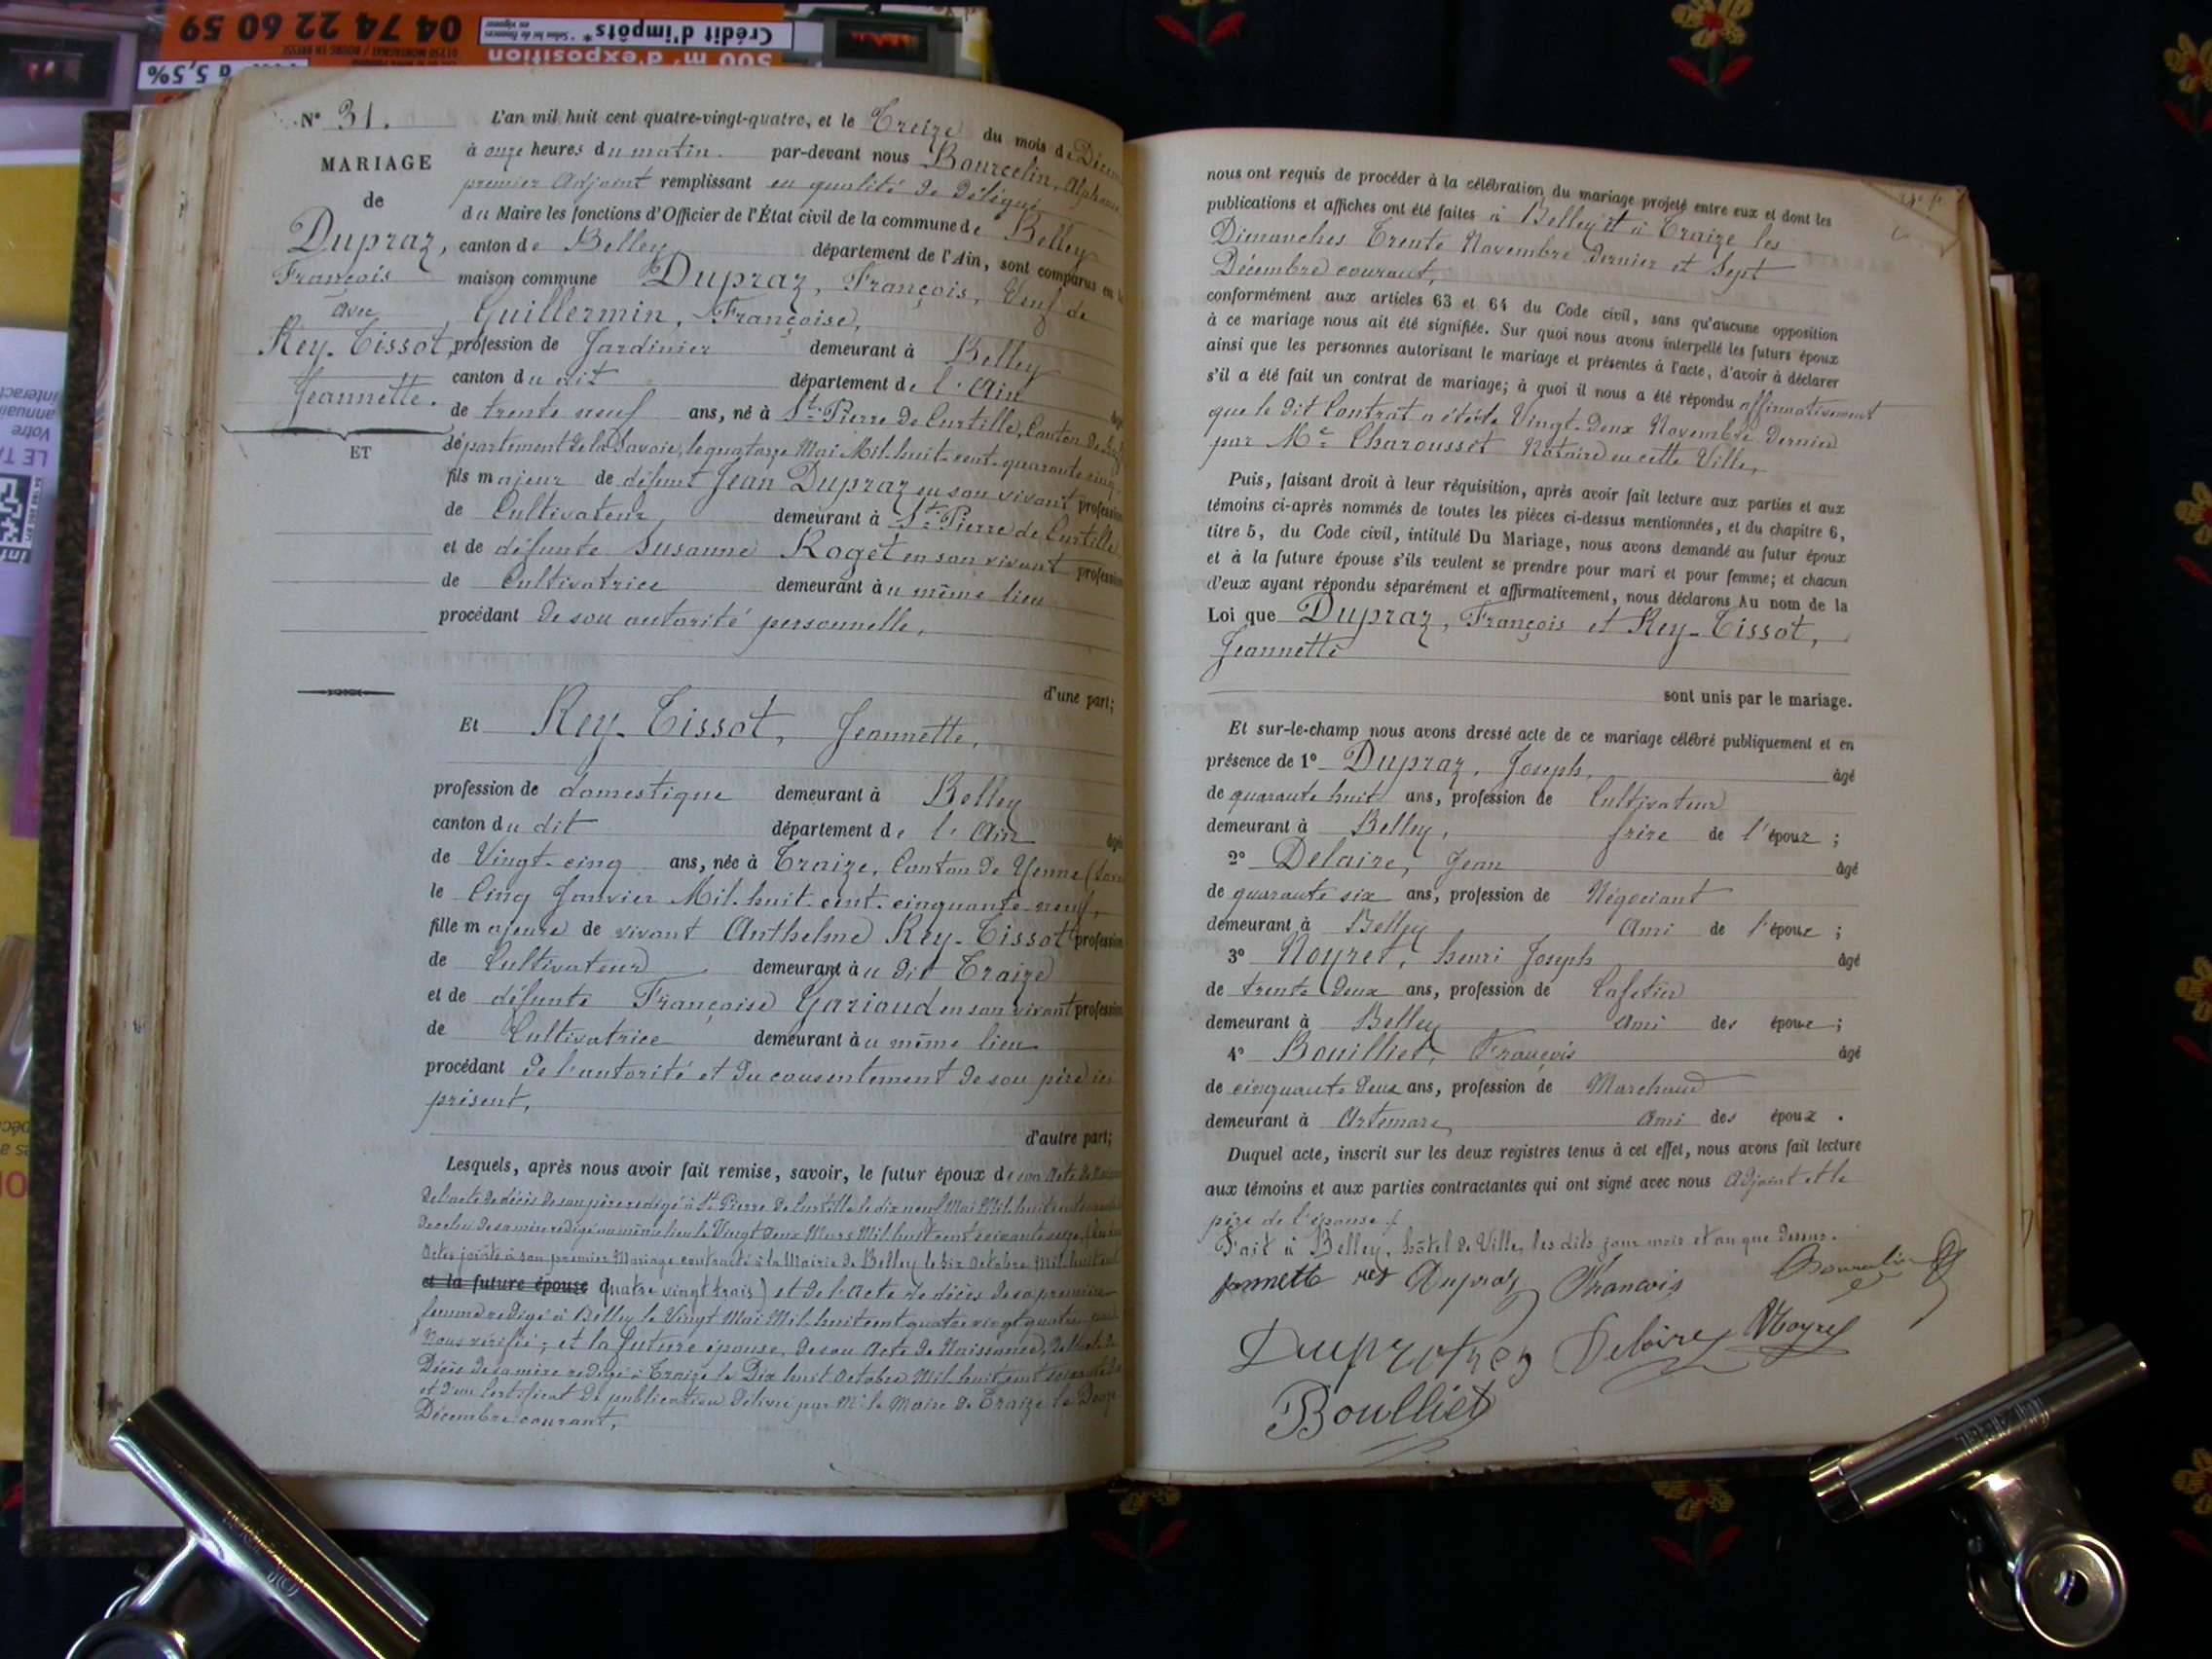 04 74 22 60 59
01250 MONTAGNAT / BOURG EN BRESSE
Crédit d'impôts*
* Selon loi de finances en vigueur
500 m² d'exposition
5,5%
N° 31.
MARIAGE
de
Dupraz,
François
avec
Rey-Tissot,
Jeannette.
ET
L'an mil huit cent quatre-vingt-quatre, et le Treize du mois de
à onze heures du matin. par-devant nous Bourcelin, Alphonse
premier Adjoint remplissant en qualité de délégué
du Maire les fonctions d'Officier de l'État civil de la commune de Belley
canton de Belley département de l'Ain, sont comparus en
maison commune Dupraz, François, Veuf de
Guillermin, Françoise,
profession de Jardinier demeurant à Belley
canton du dit département de l'Ain
de trente neuf ans, né à St Pierre de Curtille, Canton de
département de la Savoie, le quatorze Mai Mil-huit-cent-quarante cinq
fils majeur de défunt Jean Dupraz en son vivant profession
de Cultivateur, demeurant à St Pierre de Curtille,
et de défunte Susanne Roget en son vivant profession
de Cultivatrice demeurant au même lieu
procédant de son autorité personnelle,
d'une part;
Et Rey-Tissot, Jeannette,
profession de domestique demeurant à Belley
canton du dit département de l'Ain
de Vingt-cinq ans, née à Traize, Canton de Yenne
le Cinq Janvier Mil-huit-cent-cinquante-neuf,
fille majeure de vivant Anthelme Rey-Tissot profession
de Cultivateur demeurant au dit Traize
et de défunte Françoise Garioud en son vivant profession
de Cultivatrice demeurant au même lieu
procédant de l'autorité et du consentement de son père ici
présent,
d'autre part;
Lesquels, après nous avoir fait remise, savoir, le futur époux de son Acte de
de l'acte de décès de son père rédigé à St Pierre de Curtille le dix neuf Mai Mil-huit-cent
de celui de sa mère rédigé au même lieu le Vingt deux Mars Mil-huit-cent soixante seize,
Actes joints à son premier Mariage contracté à la Mairie de Belley le six Octobre Mil-huit-cent
et la future épouse quatre vingt trois) et de l'Acte de décès de sa première
femme rédigé à Belley le Vingt Mai Mil-huit-cent quatre vingt quatre,
Nous vérifié; et la future épouse, de son Acte de Naissance, de l'Acte de
Décès de sa mère rédigé à Traize le Dix huit Octobre Mil-huit-cent
et d'un Certificat de publication délivré par Mr le Maire de Traize le Douze
Décembre courant,
nous ont requis de procéder à la célébration du mariage projeté entre eux et dont les
publications et affiches ont été faites à Belley et à Traize les
Dimanches Trente Novembre dernier et Sept
Décembre courant,
conformément aux articles 63 et 64 du Code civil, sans qu'aucune opposition
à ce mariage nous ait été signifiée. Sur quoi nous avons interpellé les futurs époux
ainsi que les personnes autorisant le mariage et présentes à l'acte, d'avoir à déclarer
s'il a été fait un contrat de mariage; à quoi il nous a été répondu affirmativement
que le dit Contrat a été le Vingt-Deux Novembre dernier
par Me Charousset Notaire en cette Ville,
Puis, faisant droit à leur réquisition, après avoir fait lecture aux parties et aux
témoins ci-après nommés de toutes les pièces ci-dessus mentionnées, et du chapitre 6,
titre 5, du Code civil, intitulé Du Mariage, nous avons demandé au futur époux
et à la future épouse s'ils veulent se prendre pour mari et pour femme; et chacun
d'eux ayant répondu séparément et affirmativement, nous déclarons Au nom de la
Loi que Dupraz, François et Rey-Tissot,
Jeannette
sont unis par le mariage.
Et sur-le-champ nous avons dressé acte de ce mariage célébré publiquement et en
présence de 1° Dupraz, Joseph, âgé
de quarante huit ans, profession de Cultivateur
demeurant à Belley, frère de l'époux ;
2° Delaire, Jean âgé
de quarante six ans, profession de Négociant
demeurant à Belley Ami de l'époux ;
3° Noyret, henri Joseph âgé
de trente Deux ans, profession de Cafetier
demeurant à Belley Ami des époux ;
4° Bouilliet, François âgé
de cinquante deux ans, profession de Marchand
demeurant à Artemare Ami des époux .
Duquel acte, inscrit sur les deux registres tenus à cet effet, nous avons fait lecture
aux témoins et aux parties contractantes qui ont signé avec nous Adjoint et le
père de l'épouse.
Fait à Belley, hôtel de Ville, les dits jour mois et an que dessus.
jannette rey Dupraz François Bourcelin
Delaire Noyret
Boulliet